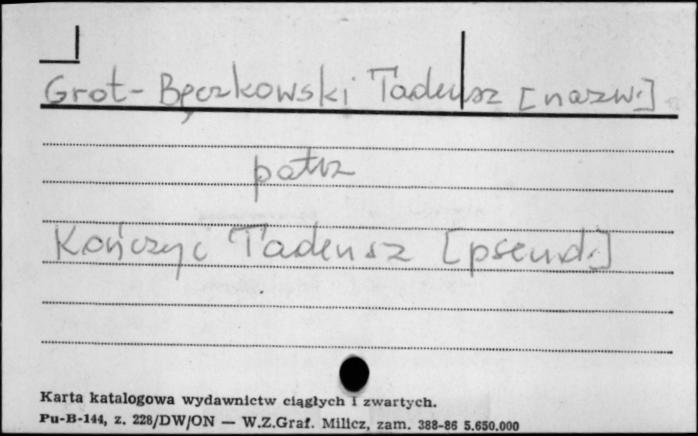 Grot-Bęczkowski Tadeusz [nazw.]
patrz
Kończyc Tadeusz [pseud.]
Karta katalogowa wydawnictw ciągłych i zwartych.
Pu-B-144, z. 228/DW/ON — W.Z.Graf. Milicz, zam. 388-86 5.650.000